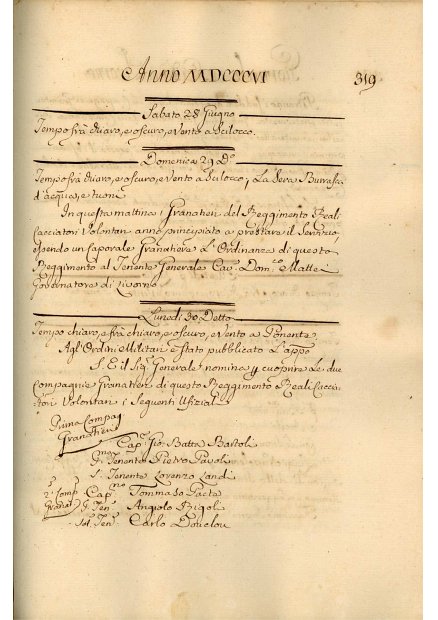 Anno MDCCCVI
319
Sabato 28 Giugno
Tempo frà chiaro, e oscuro, e Vento a Scilocco.
Domenica 29 Dº
Tempo frà chiaro, e oscuro, e Vento a Scilocco, La Sera Burrasca
d'acqua, e tuoni
In questa mattina i Granatieri del Reggimento Reali
Cacciatori Volontari anno principiato a prestare il Servizio,
essendo un Caporale Granatiere L'Ordinanza di questo
Reggimento al Tenente Generale Cav. Domco Matteì
Governatore di Livorno
Lunedi 30 Detto
Tempo chiaro, e frà chiaro, e oscuro, e Vento a Ponente
Agl'Ordini Militari è stato pubblicato L'appo
S. E. il Sigr Generale nomina p cuoprire Le due
Compagnie Granatieri di questo Reggimento Reali Caccia
tori Volontari i Seguenti Ufizial
Prima Compag
Granatieri
Capo Gio Batta Bartoli
Pmo Tenente Pietro Pavoli
S. Tenente Lorenzo Landi
2a Comp Capno Tommaso Pacta
Granat P. Ten Angiolo Rigoli
Sot. Ten Carlo